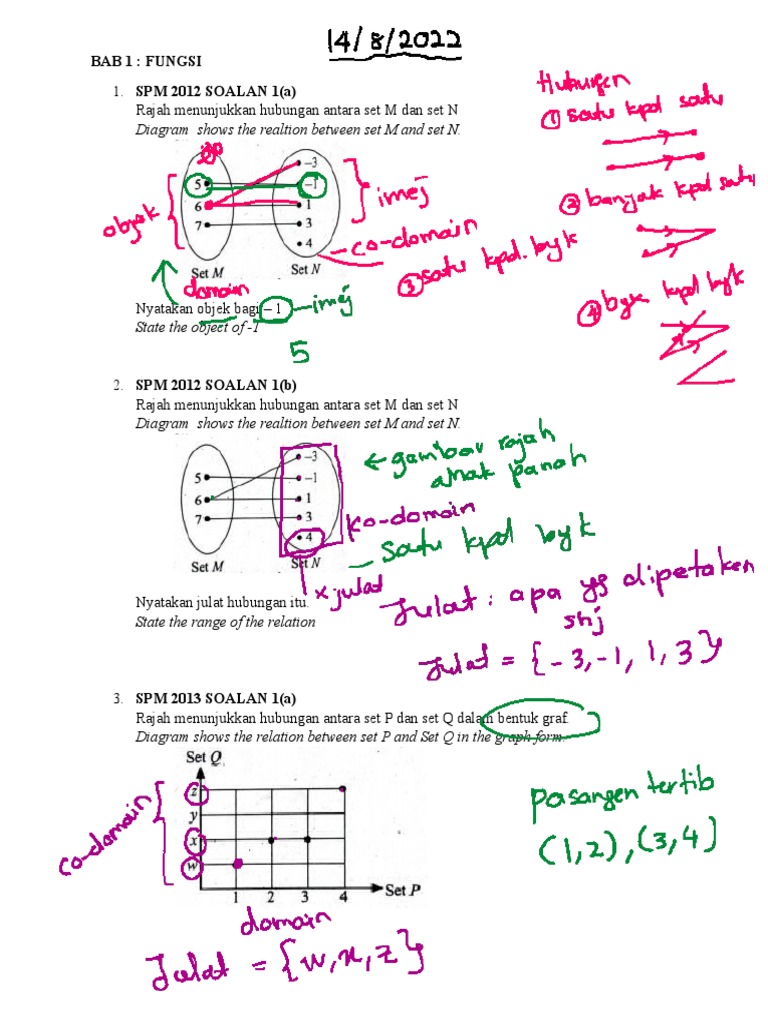 14/8/2022
BAB 1 : FUNGSI
1. SPM 2012 SOALAN 1(a)
Rajah menunjukkan hubungan antara set M dan set N
Diagram shows the realtion between set M and set N.
5
6
7
–3
–1
1
3
4
objek
imej
co-domain
Set M
Set N
domain
Hubungan
① satu kpd satu
② banyak kpd satu
③ satu kpd. byk
④ byk kpd byk
Nyatakan objek bagi – 1
imej
State the object of -1
5
2. SPM 2012 SOALAN 1(b)
Rajah menunjukkan hubungan antara set M dan set N
Diagram shows the realtion between set M and set N.
5
6
7
–3
–1
1
3
4
gambar rajah
anak panah
ko-domain
satu kpd byk
Set M
Set N
x julat
Nyatakan julat hubungan itu.
State the range of the relation
Julat : apa yg dipetakan
shj
Julat = {-3, -1, 1, 3}
3. SPM 2013 SOALAN 1(a)
Rajah menunjukkan hubungan antara set P dan set Q dalam bentuk graf.
Diagram shows the relation between set P and Set Q in the graph form.
Set Q
z
y
x
w
co-domain
Set P
1 2 3 4
domain
pasangan tertib
(1,2), (3,4)
Julat = {w, x, z}